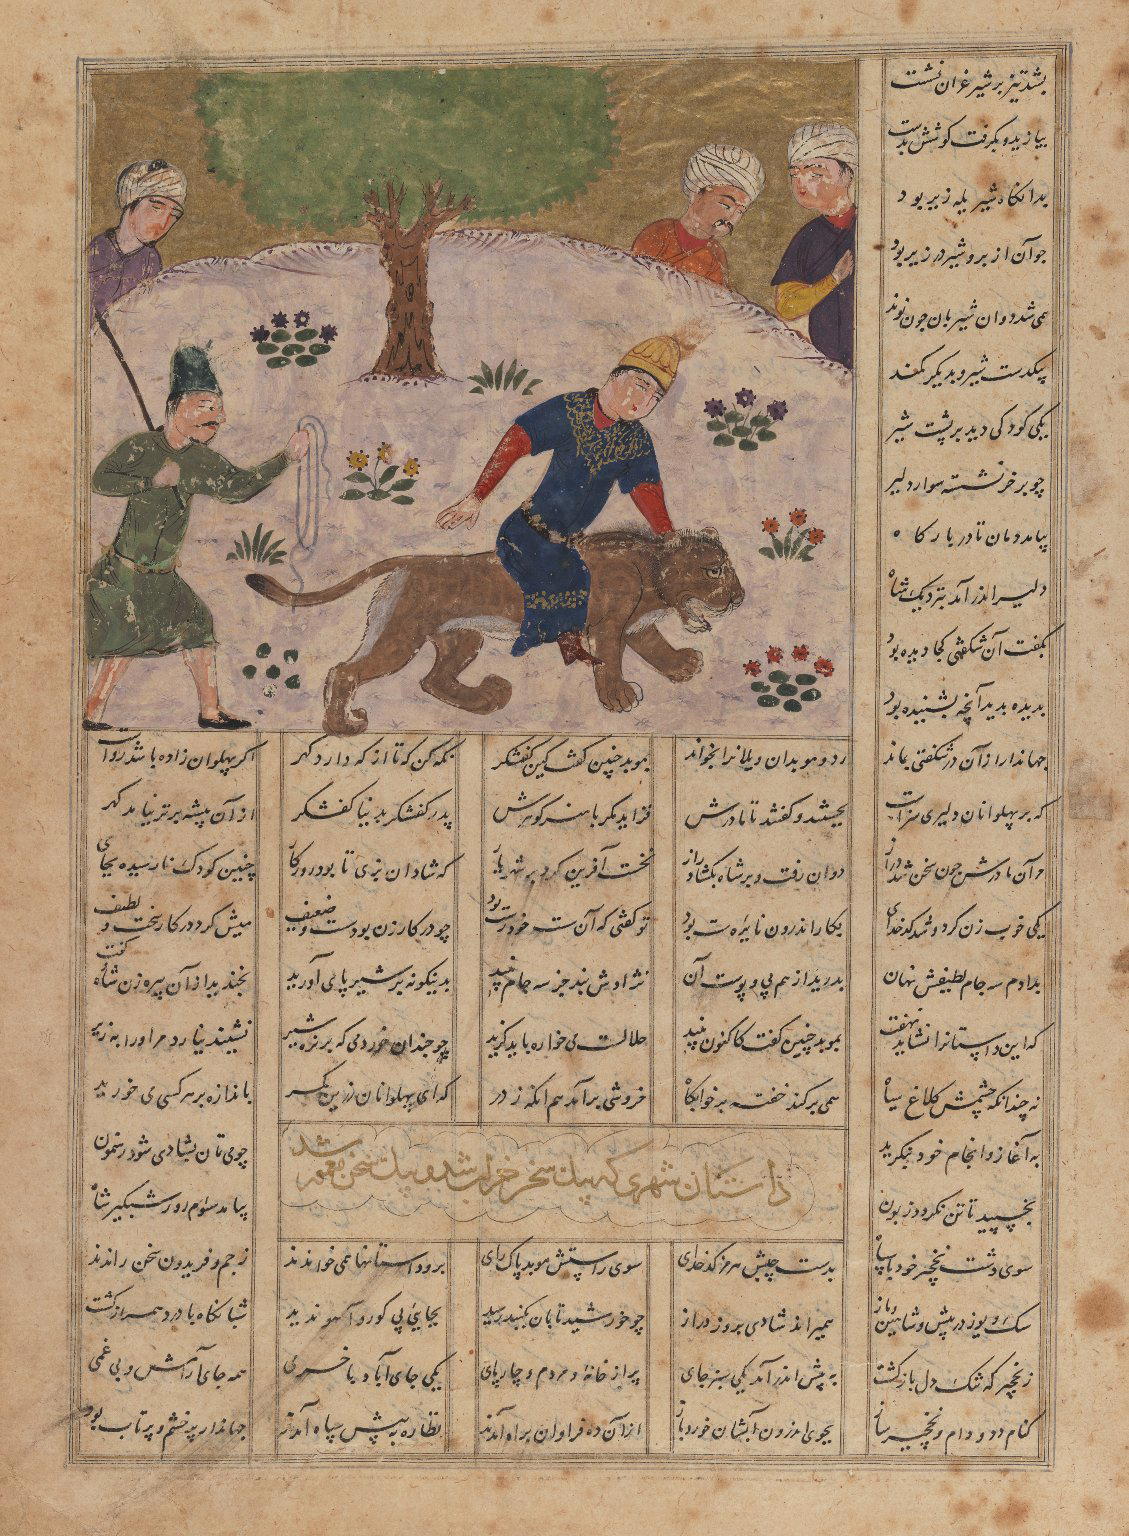 بشد تیز بر شیر غران نشست
بیازید و بگرفت گوشش بدست
بدانگاه شیر یله زیر بود
جوان از بر و شیر در زیر بود
همی شد دوان شیربان چون نوند
بیکدست شیر و بدیگر کمند
یکی کودکی دید بر پشت شیر
چو بر خر نشسته سوار دلیر
بیامد دمان تا در بارگاه
دلیر اندر آمد بنزدیک شاه
بگفت آن شگفتی کجا دیده بود
بدیده بدید آنچه بشنیده بود
جهاندار ازان در شگفتی بماند
رد و موبدان و یلانرا بخواند
بموبد چنین گفت کین کفشگر
نگه کن که تا از که دارد گهر
اگر پهلوان زاده باشد رواست
که بر پهلوانان دلیری سزاست
بجستند و گفتند تا مادرش
فزاید مگر با هنر گوهرش
پدر کفشگر بد نیا کفشگر
از آن پیشه برتر نیامد گهر
چو آن مادرش چون سخن شد دراز
دوان رفت و بر شاه بگشاد راز
نخست آفرین کرد بر شهریار
که شادان بزی تا بود روزگار
چنین کودک نارسیده بجای
یکی خوب زن کرد و شد کدخدای
بکار اندرون نایژه سست بود
تو گفتی که آن سست خود رست بود
چو در کار زن بود سست و ضعیف
میش کرد در کار سخت و لطیف
بدادم سه جام لطیفش نهان
بدرید از هم پی و پوست آن
نژادش نبد جز سه جام نبید
بدینگونه بر شیر پای آورید
بخندید از آن پیرزن شاه گفت
که این داستانرا نشاید نهفت
بموبد چنین گفت کاکنون نبید
حلالست می خواره باید گزید
چو چندان خورد می که بر نره شیر
نشیند نیارد مر او را به زیر
نه چندانکه چشمش کلاغ سیاه
همی برکند خفته بر خوابگاه
خروشی برآمد هم آنگه ز در
که ای پهلوانان زرین کمر
باندازه بر هر کسی می خورید
به آغاز و انجام خود بنگرید
چو می تان بشادی شود رهنمون
بخسپید تا تن نگردد زبون
داستان شهری که بیک سخن خراب شد و بیک سخن معمور شد
بیامد سوم روز شبگیر شاه
سوی دشت نخچیر خود با سپاه
بدست چپش هرمز کدخدای
سوی راستش موبد پاک رای
برو داستانها همی خواندند
ز جم و فریدون سخن راندند
سگ و یوز در پیش و شاهین و باز
همیراند شادی بروز دراز
چو خورشید تابان بگنبد رسید
بجایی پی گور و آهو ندید
شبانگاه با درد همراز گشت
ز نخچیر که تنگ دل بازگشت
به پیش اندر آمد یکی سبز جای
پر از خانه و مردم و چارپای
یکی جای آباد با خرمی
همه جای آرامش و بی غمی
کنام دد و دام و نخچیر
بجوی اندرون آبشان خورد
از آن ده فراوان براه آمدند
نظاره به پیش سپاه آمدند
جهاندار پر خشم و پر تاب بود